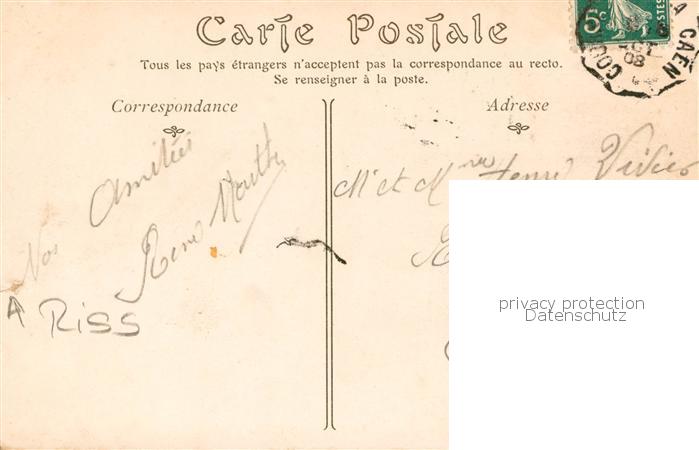 Carte Postale
Tous les pays étrangers n'acceptent pas la correspondance au recto.
Se renseigner à la poste.
Correspondance
Adresse
5c
POSTES
A CAEN
08
Nos Amitiés
René
A RISS
Mr et Mme Henri
privacy protection
Datenschutz